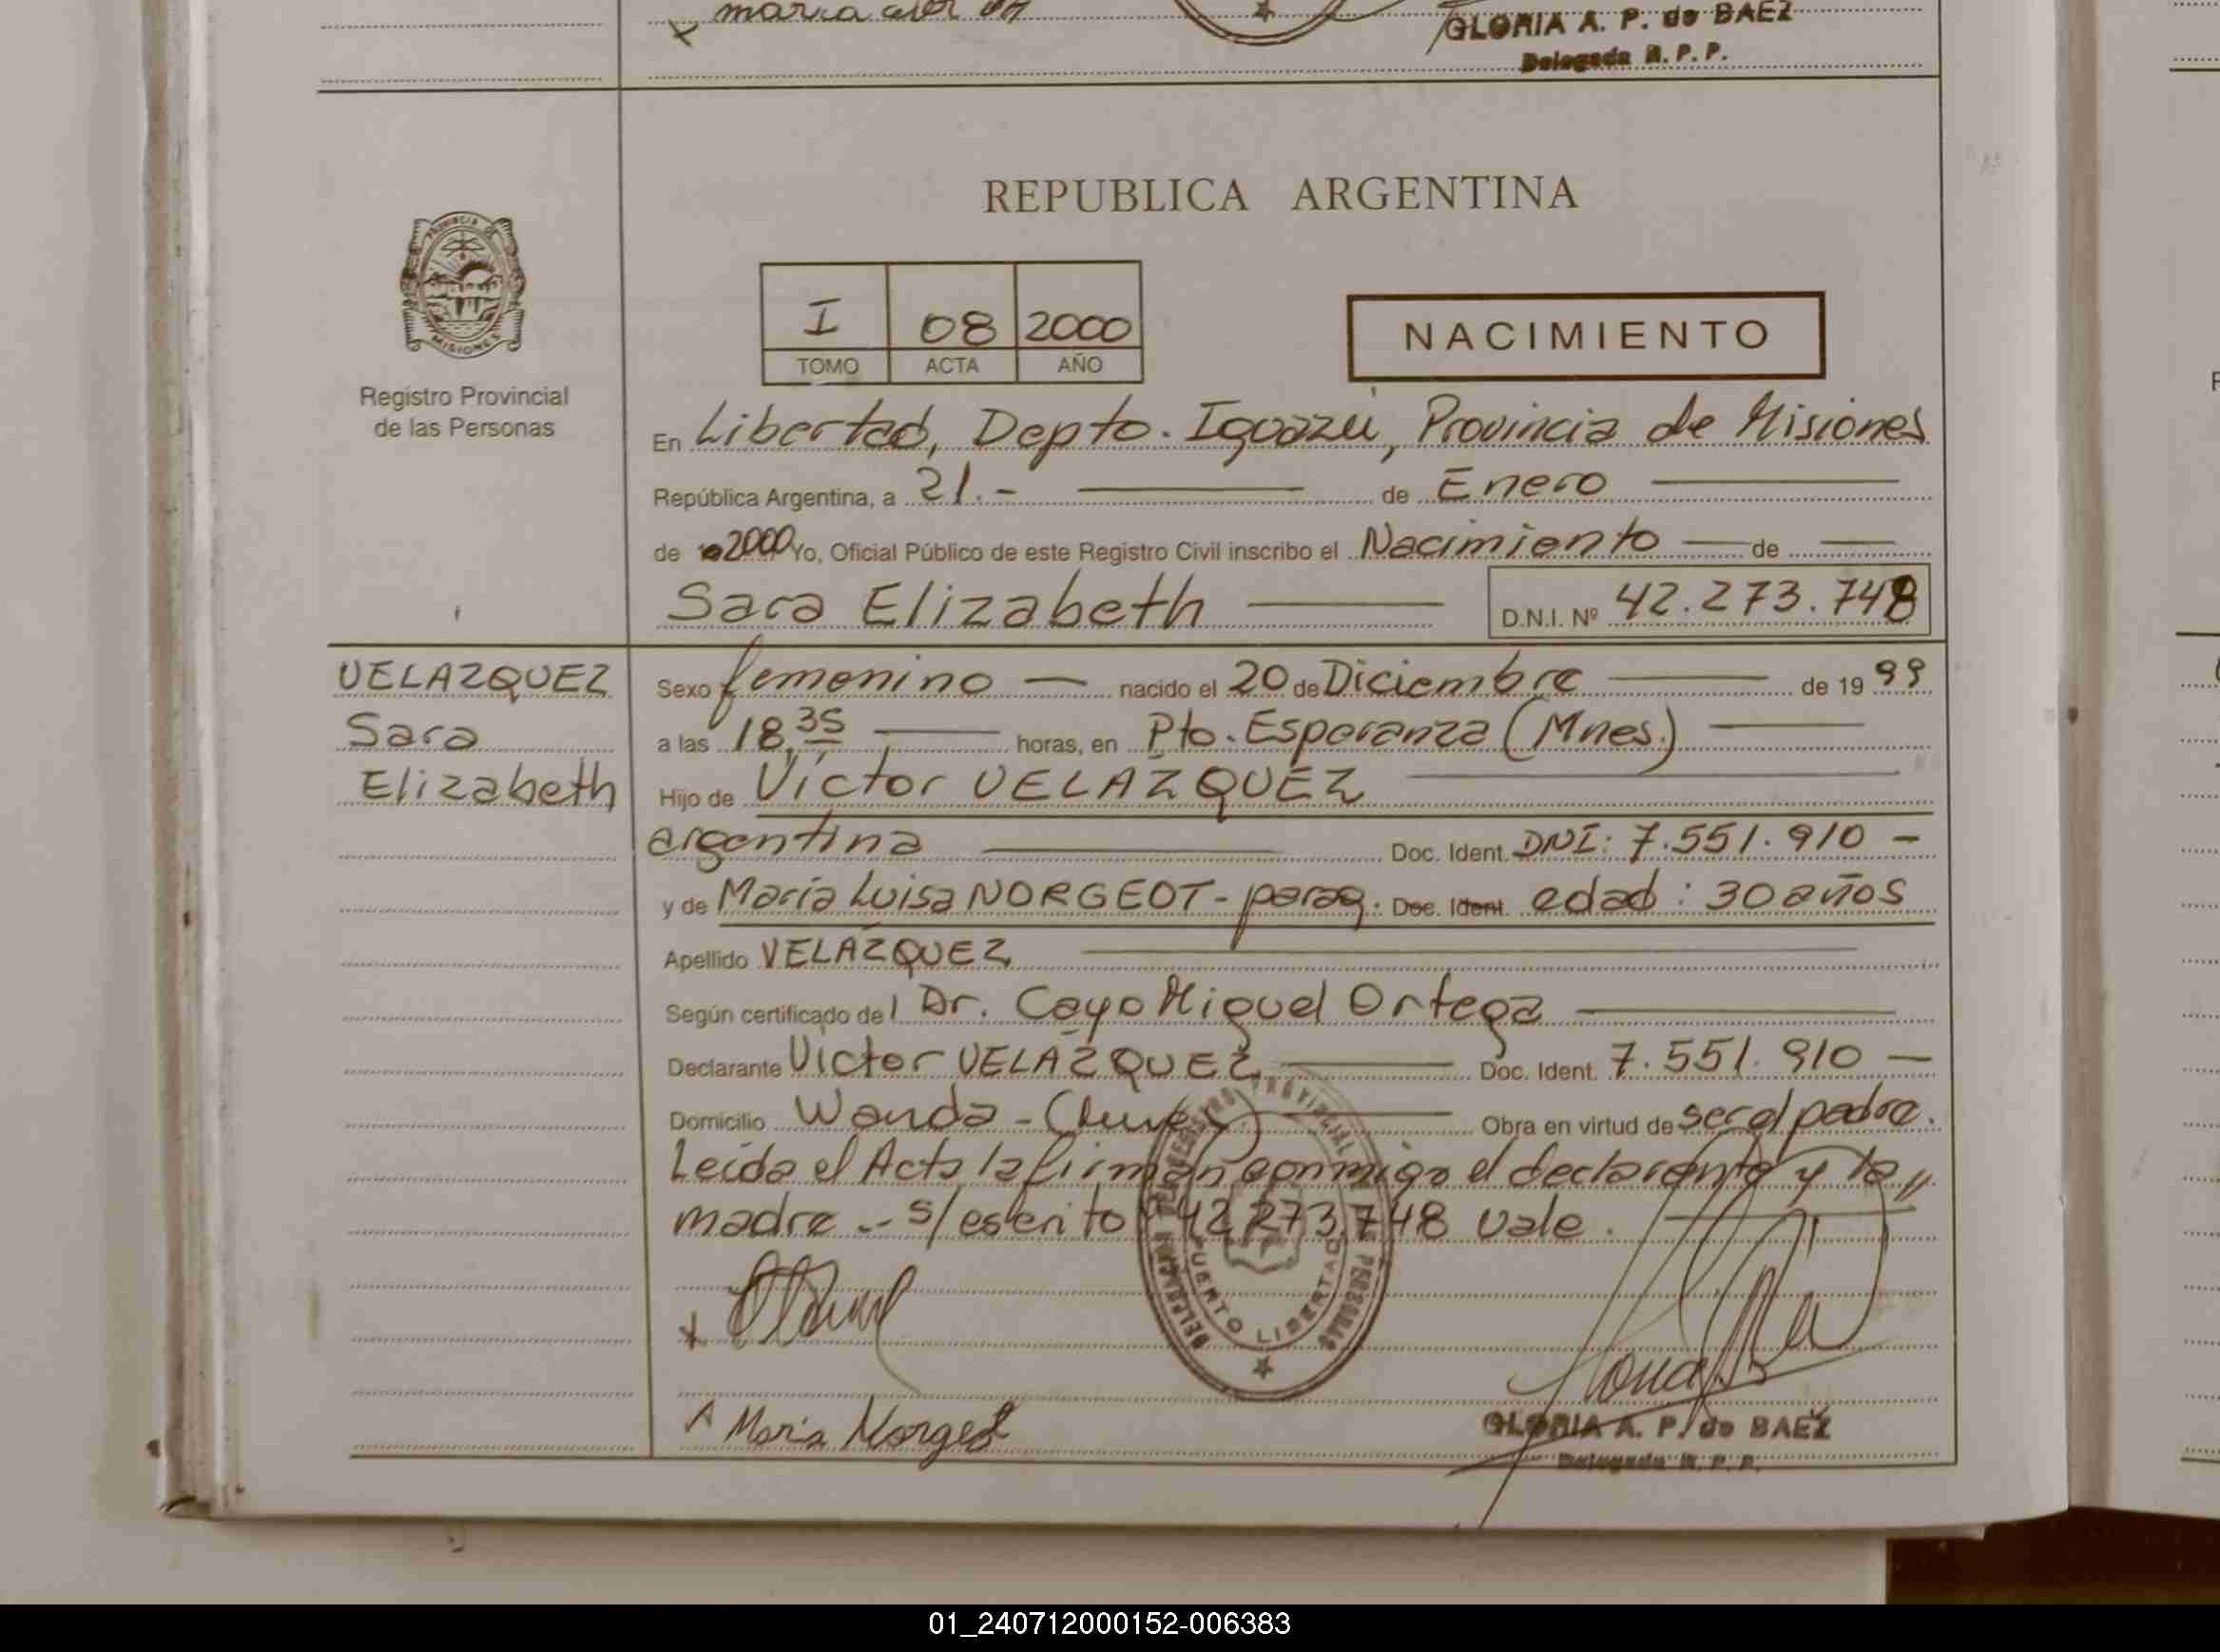 GLORIA A. P. de BAEZ
Delegada R. P. P.
REPUBLICA ARGENTINA
PROVINCIA DE MISIONES
Registro Provincial
de las Personas
I 08 2000
TOMO ACTA AÑO
NACIMIENTO
En Libertad, Depto. Iguazú, Provincia de Misiones
República Argentina, a 21.- de Enero
de 2000 Yo, Oficial Público de este Registro Civil inscribo el Nacimiento de
Sara Elizabeth D.N.I. Nº 42.273.748
VELAZQUEZ
Sara
Elizabeth
Sexo femenino nacido el 20 de Diciembre de 19 99
a las 18,35 horas, en Pto. Esperanza (Mnes.)
Hijo de Víctor VELÁZQUEZ
argentina Doc. Ident. DNI: 7.551.910 -
y de María Luisa NORGEOT - parag. Doc. Ident. edad: 30 años
Apellido VELÁZQUEZ
Según certificado del Dr. Cayo Miguel Ortega
Declarante Víctor VELÁZQUEZ Doc. Ident. 7.551.910 -
Domicilio Wanda - Obra en virtud de ser el padre.
Leída el Acta la firman conmigo el declarante y la
madre -- s/escrito 42.273.748 vale.
DELEGACION REGISTRO PROVINCIAL DE PERSONAS
PUERTO LIBERTAD
Maria Norgeot
GLORIA A. P. de BAEZ
Delegada R. P. P.
01_240712000152-006383